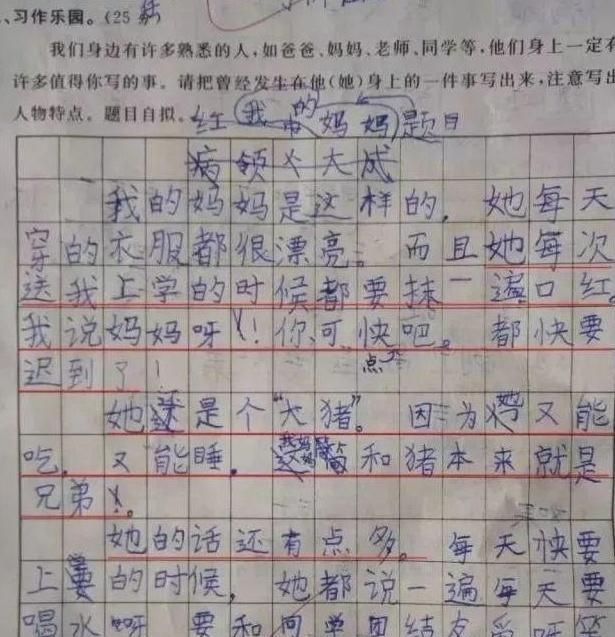 、习作乐园。(25
我们身边有许多熟悉的人,如爸爸、妈妈、老师、同学等,他们身上一定有
许多值得你写的事。请把曾经发生在他(她)身上的一件事写出来,注意写出
人物特点。题目自拟。
我的妈妈 题目
我的妈妈是这样的,她每天
穿的衣服都很漂亮。而且她每次
送我上学的时候都要抹一遍口红
我说妈妈呀!你可快点吧。都快要
迟到了!
她还是个“大猪”。因为她又能
吃,又能睡,和猪本来就是
兄弟。
她的话还有点多。每天快要
上要的时候,她都说一遍每天要
喝水呀 要和同学团结